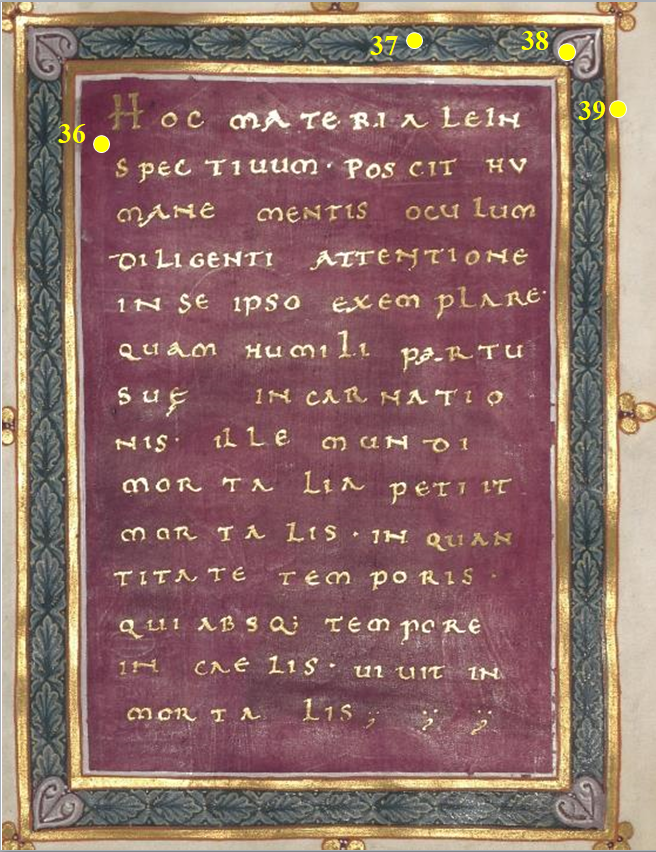 37
38
39
36
HOC MATERIALE IN
SPECTIUUM · POSCIT HV
MANE MENTIS OCULUM
DILIGENTI ATTENTIONE
IN SE IPSO EXEMPLARE·
QUAM HUMILI PARTU
SUĘ INCARNATIO
NIS· ILLE MUNDI
MORTALIA PETIIT
MORTALIS · IN QUAN
TITATE TEMPORIS ·
QUI ABSQ; TEMPORE
IN CAELIS · UIUIT IN
MORTALIS ; ; ;